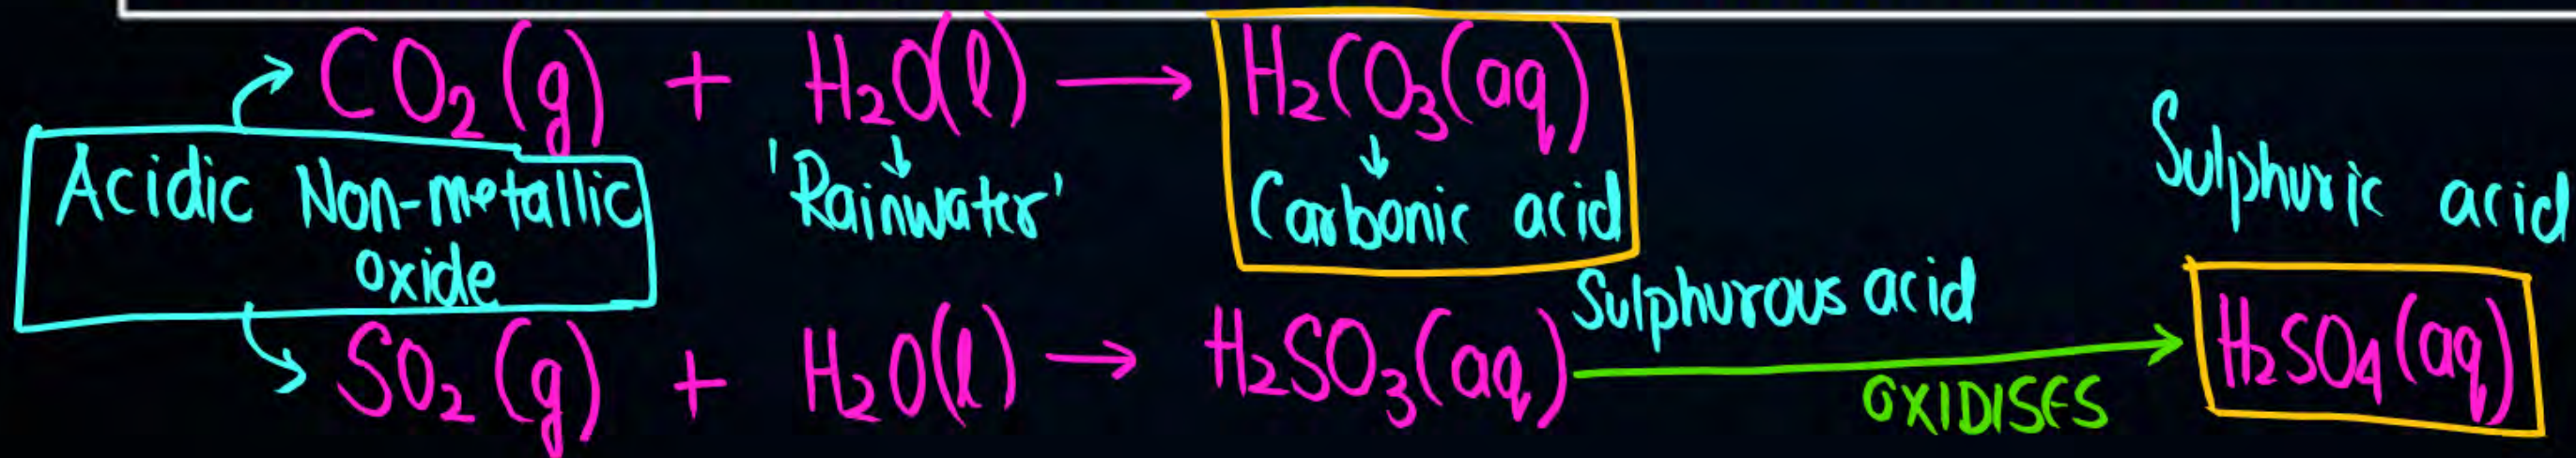 CO₂(g) + H₂O(l) → H₂CO₃(aq)
Acidic Non-metallic oxide
'Rainwater'
Carbonic acid
Sulphuric acid
Sulphurous acid
SO₂(g) + H₂O(l) → H₂SO₃(aq) → H₂SO₄(aq)
OXIDISES